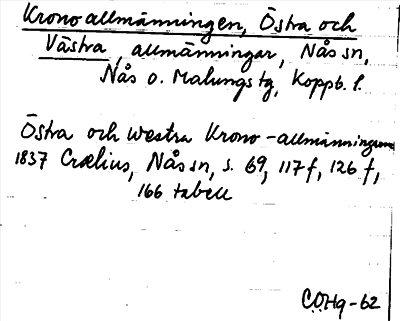 Kronoallmänningen, Östra och
Västra, allmänningar, Nås sn,
Nås o. Malungs tg, Koppb. l.
Östra och westra Krono-allmänningarne
1837 Crælius, Nås sn, s. 69, 117 f, 126 f,
166 tabell
C.Ö.Hq-62